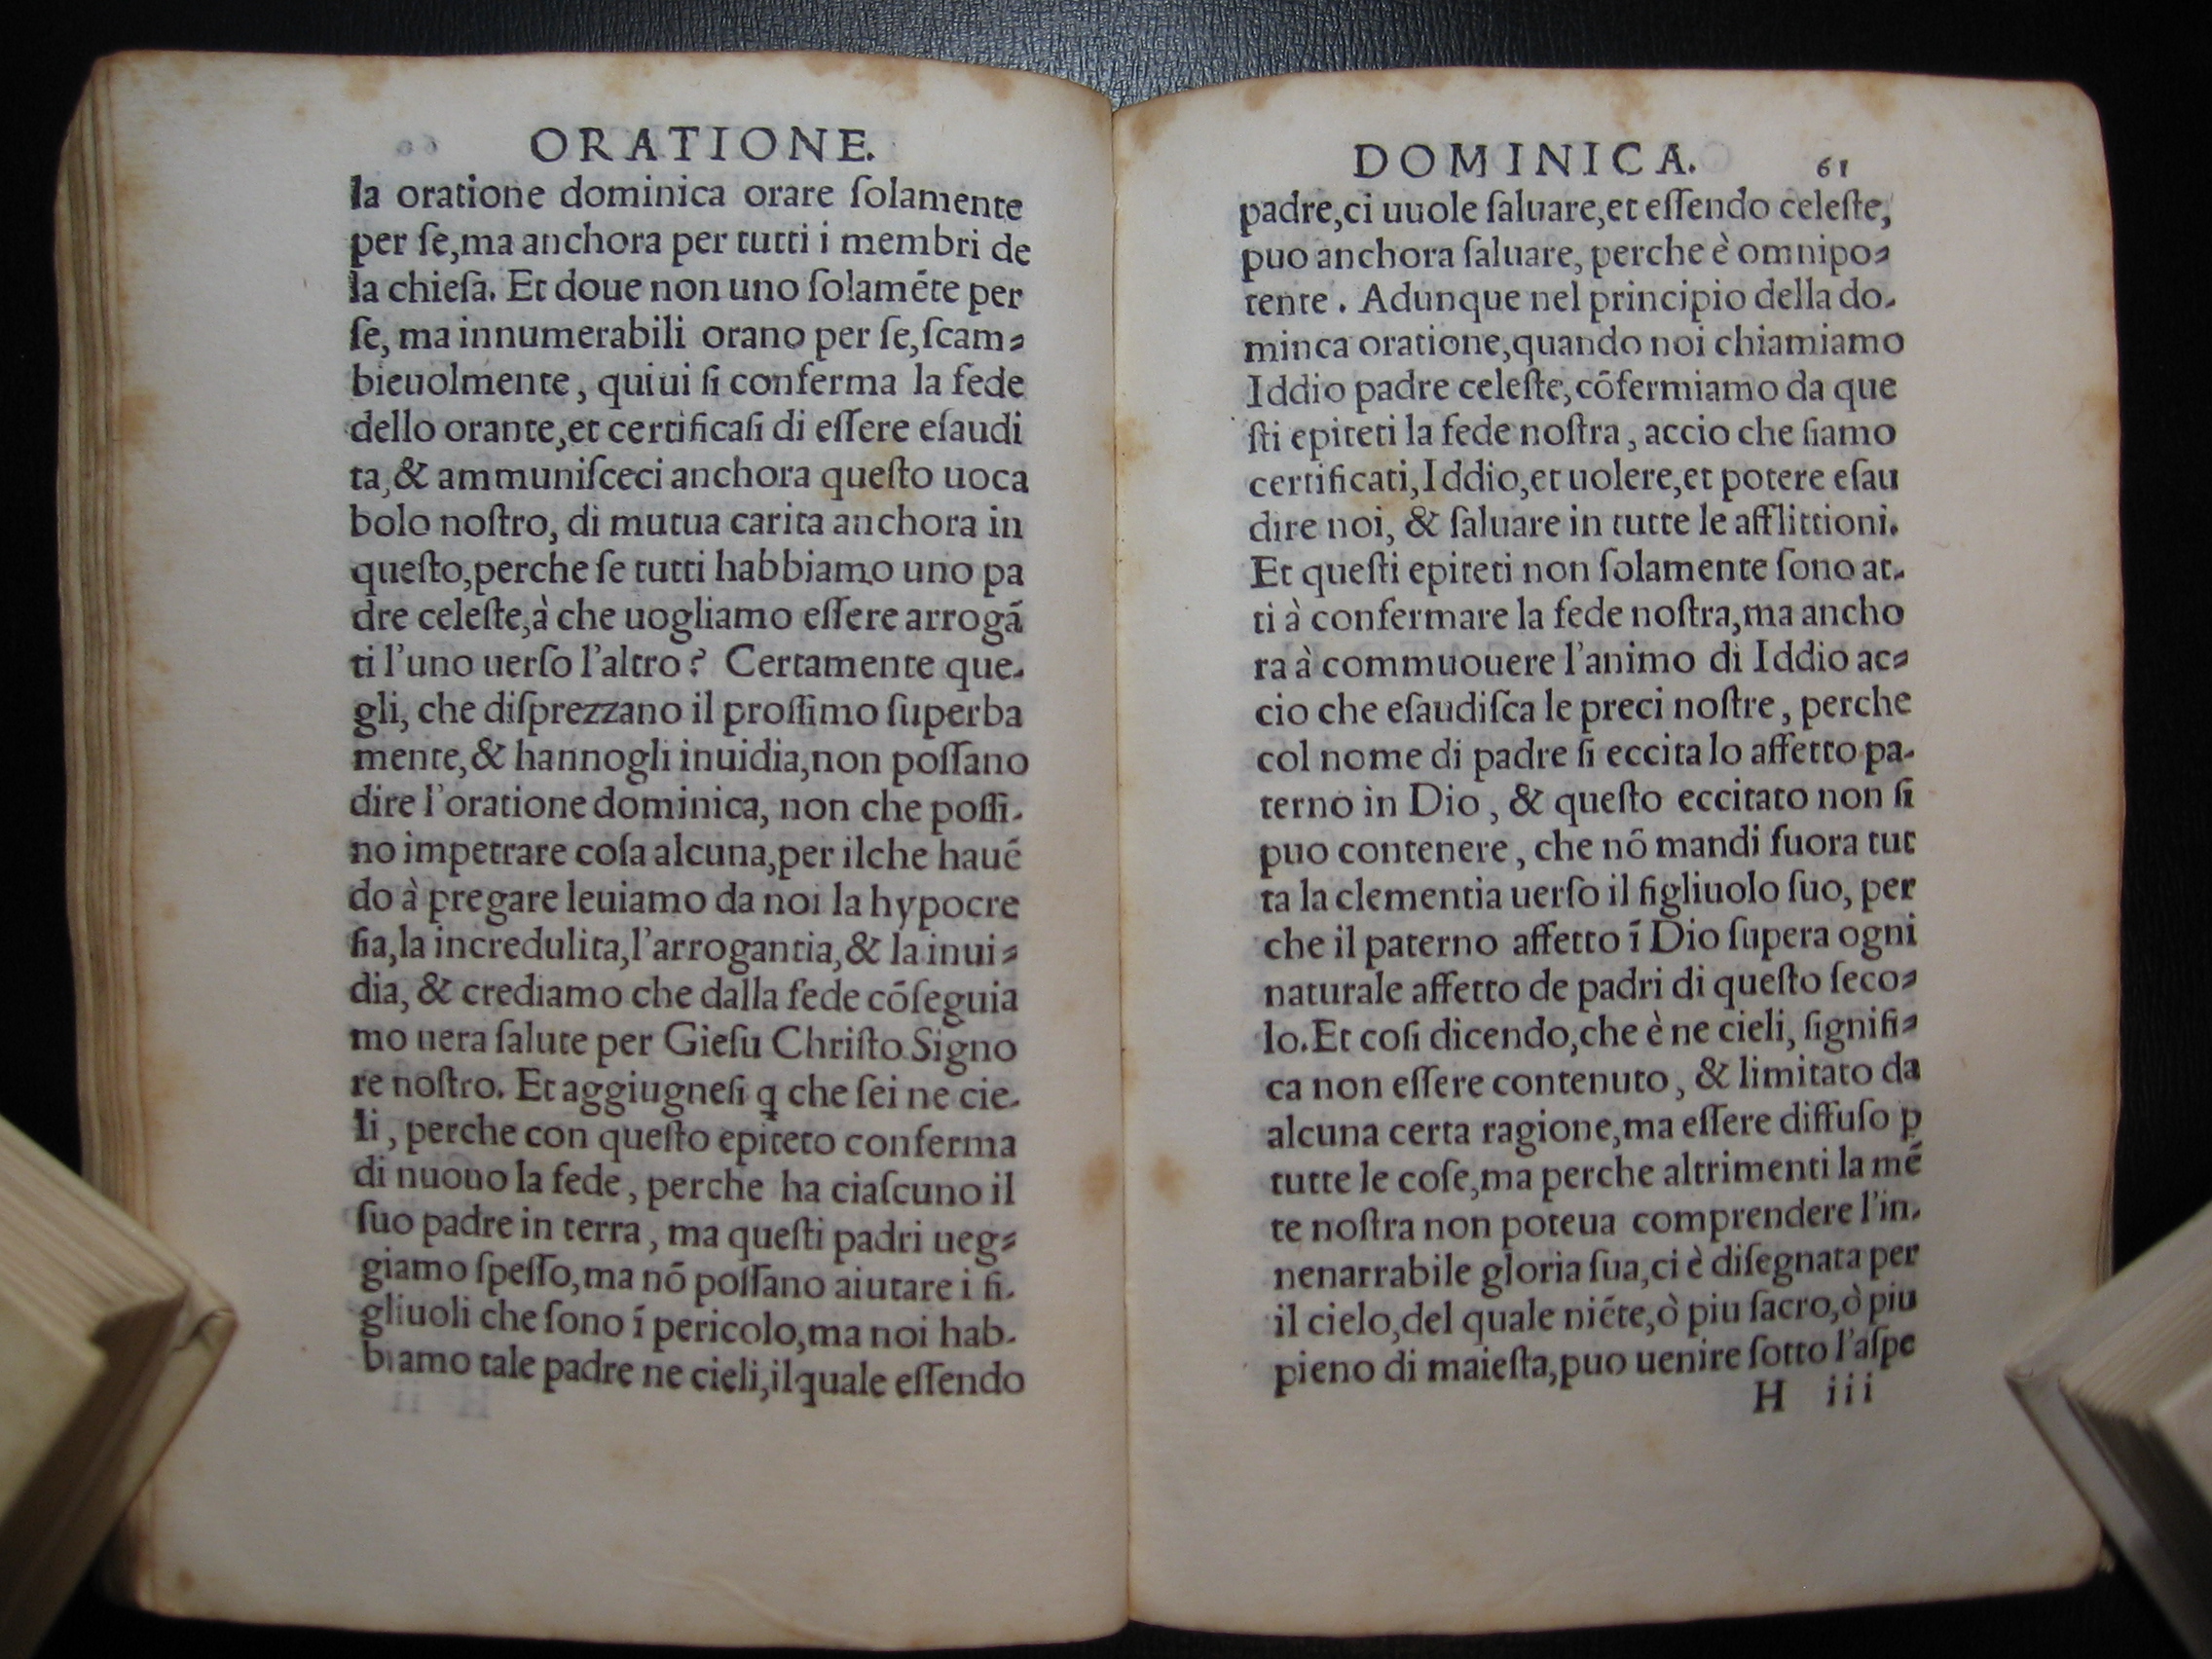 ORATIONE.
la oratione dominica orare ſolamente
per ſe,ma anchora per tutti i membri de
la chieſa. Et doue non uno ſolamẽte per
ſe, ma innumerabili orano per ſe,ſcam⸗
bieuolmente, quiui ſi conferma la fede
dello orante,et certificaſi di eſſere eſaudi
ta,& ammuniſceci anchora queſto uoca
bolo noſtro, di mutua carita anchora in
queſto,perche ſe tutti habbiamo uno pa
dre celeſte,à che uogliamo eſſere arrogã
ti l'uno uerſo l'altro? Certamente que-
gli, che diſprezzano il proſſimo ſuperba
mente,& hannogli inuidia,non poſſano
dire l'oratione dominica, non che poſſi-
no impetrare coſa alcuna,per ilche hauẽ
do à pregare leuiamo da noi la hypocre
ſia,la incredulita,l'arrogantia,& la inui⸗
dia, & crediamo che dalla fede cõſeguia
mo uera ſalute per Gieſu Chriſto Signo
re noſtro. Et aggiugneſi q̃ che ſei ne cie-
li, perche con queſto epiteto conferma
di nuouo la fede, perche ha ciaſcuno il
ſuo padre in terra, ma queſti padri ueg⸗
giamo ſpeſſo,ma nõ poſſano aiutare i fi-
gliuoli che ſono ĩ pericolo,ma noi hab-
biamo tale padre ne cieli,ilquale eſſendo
DOMINICA. 61
padre,ci uuole ſaluare,et eſſendo celeſte,
puo anchora ſaluare, perche è omnipo⸗
tente. Adunque nel principio della do-
minca oratione,quando noi chiamiamo
Iddio padre celeſte,cõfermiamo da que
ſti epiteti la fede noſtra, accio che ſiamo
certificati,Iddio,et uolere,et potere eſau
dire noi, & ſaluare in tutte le afflittioni.
Et queſti epiteti non ſolamente ſono at-
ti à confermare la fede noſtra,ma ancho
ra à commuouere l'animo di Iddio ac⸗
cio che eſaudiſca le preci noſtre, perche
col nome di padre ſi eccita lo affetto pa-
terno in Dio, & queſto eccitato non ſi
puo contenere, che nõ mandi fuora tut
ta la clementia uerſo il figliuolo ſuo, per
che il paterno affetto ĩ Dio ſupera ogni
naturale affetto de padri di queſto ſeco⸗
lo.Et coſi dicendo,che è ne cieli, ſignifi⸗
ca non eſſere contenuto, & limitato da
alcuna certa ragione,ma eſſere diffuſo ꝑ
tutte le coſe,ma perche altrimenti la mẽ
te noſtra non poteua comprendere l'in-
nenarrabile gloria ſua,ci è diſegnata per
il cielo,del quale niẽte,ò piu ſacro,ò piu
pieno di maieſta,puo uenire ſotto l'aſpe
H iii